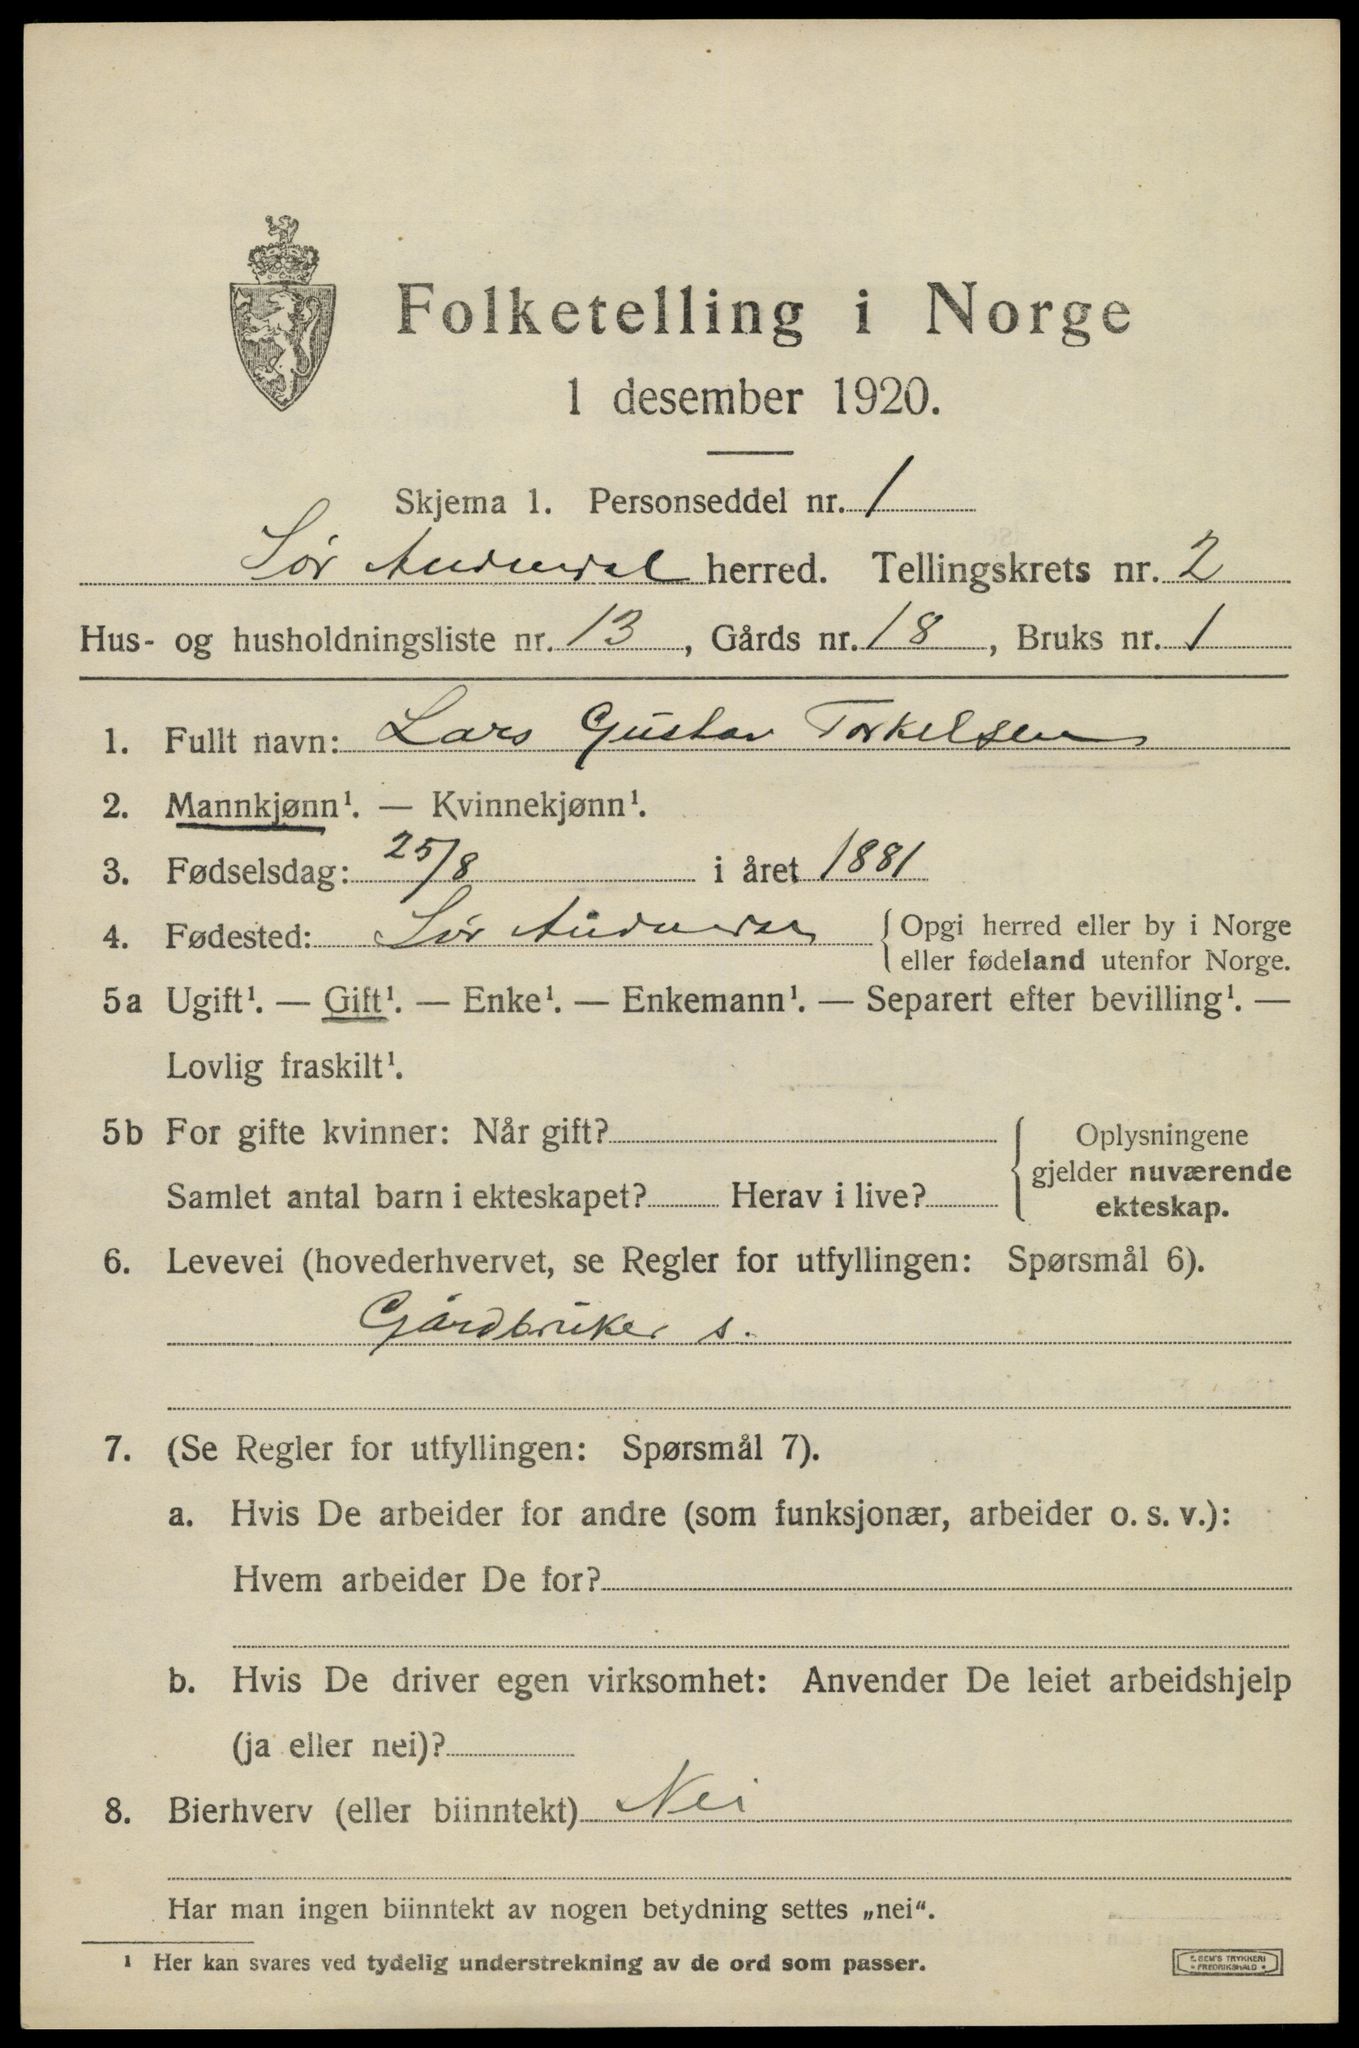 Folketelling i Norge
1 desember 1920.
Skjema 1. Personseddel nr. 1
Sør Audnedal herred. Tellingskrets nr. 2
Hus- og husholdningsliste nr. 13, Gårds nr. 18, Bruks nr. 1
1. Fullt navn: Lars Gustav Torkelsen
2. Mannkjønn¹. — Kvinnekjønn¹.
3. Fødselsdag: 25/8 i året 1881
4. Fødested: Sør Audnedal { Opgi herred eller by i Norge
eller fødeland utenfor Norge.
5a Ugift¹. — Gift¹. — Enke¹. — Enkemann¹. — Separert efter bevilling¹. —
Lovlig fraskilt¹.
5b For gifte kvinner: Når gift?
Samlet antal barn i ekteskapet? Herav i live?
Oplysningene
gjelder nuværende
ekteskap.
6. Levevei (hovederhvervet, se Regler for utfyllingen: Spørsmål 6).
Gårdbruker s.
7. (Se Regler for utfyllingen: Spørsmål 7).
a. Hvis De arbeider for andre (som funksjonær, arbeider o. s. v.):
Hvem arbeider De for?
b. Hvis De driver egen virksomhet: Anvender De leiet arbeidshjelp
(ja eller nei)?
8. Bierhverv (eller biinntekt) Nei
Har man ingen biinntekt av nogen betydning settes „nei“.
¹ Her kan svares ved tydelig understrekning av de ord som passer.
E. SEM'S TRYKKERI
• FREDRIKSHALD •